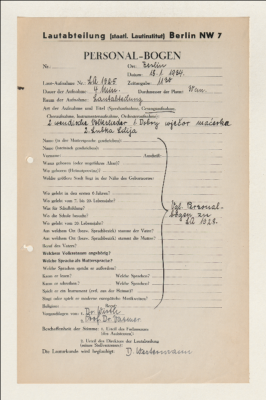 Lautabteilung (staatl. Lautinstitut) Berlin NW 7
PERSONAL-BOGEN
Nr. Ort: Berlin
Datum: 18.1.1934.
Laut-Aufnahme Nr.: LA 1265 Zeitangabe: 11
Dauer der Aufnahme: 4 Min. Durchmesser der Platte:
Raum der Aufnahme: Lautabteilung
Art der Aufnahme und Titel (Sprechaufnahme, Gesangsaufnahme,
Choraufnahme, Instrumentenaufnahme, Orchesteraufnahme):
2 wendische Volkslieder 1. Dobry wječor mačerka
2. Lubka Lilija
Name (in der Muttersprache geschrieben):
Name (lateinisch geschrieben):
Vorname: Anschrift:
Wann geboren (oder ungefähres Alter)?
Wo geboren (Heimatgegend)?
Welche größere Stadt liegt in der Nähe des Geburtsortes:
Wo gelebt in den ersten 6 Jahren?
Wo gelebt vom 7. bis 20. Lebensjahr?
Was für Schulbildung?
Wo die Schule besucht?
Wo gelebt vom 20. Lebensjahr?
Aus welchem Ort (bzw. Sprachbezirk) stammt der Vater:
Aus welchem Ort (bzw. Sprachbezirk) stammt die Mutter:
Beruf des Vaters?
Welchem Volksstamm angehörig?
Welche Sprache als Muttersprache?
Welche Sprachen spricht er außerdem?
Kann er lesen? Welche Sprachen?
Kann er schreiben? Welche Sprachen?
Spielt er ein Instrument (evtl. aus der Heimat)?
Singt oder spielt er moderne europäische Musikweisen?
Religion: Beruf:
Vgl. Personal-
bogen zu
LA
Vorgeschlagen von: 1. Dr. Wirth
2. Prof. Dr. Vasmer
Beschaffenheit der Stimme: 1. Urteil des Fachmannes
(des Assistenten):
2. Urteil des Direktors der Lautabteilung
(seines Stellvertreters):
Die Lauturkunde wird beglaubigt: D. Westermann